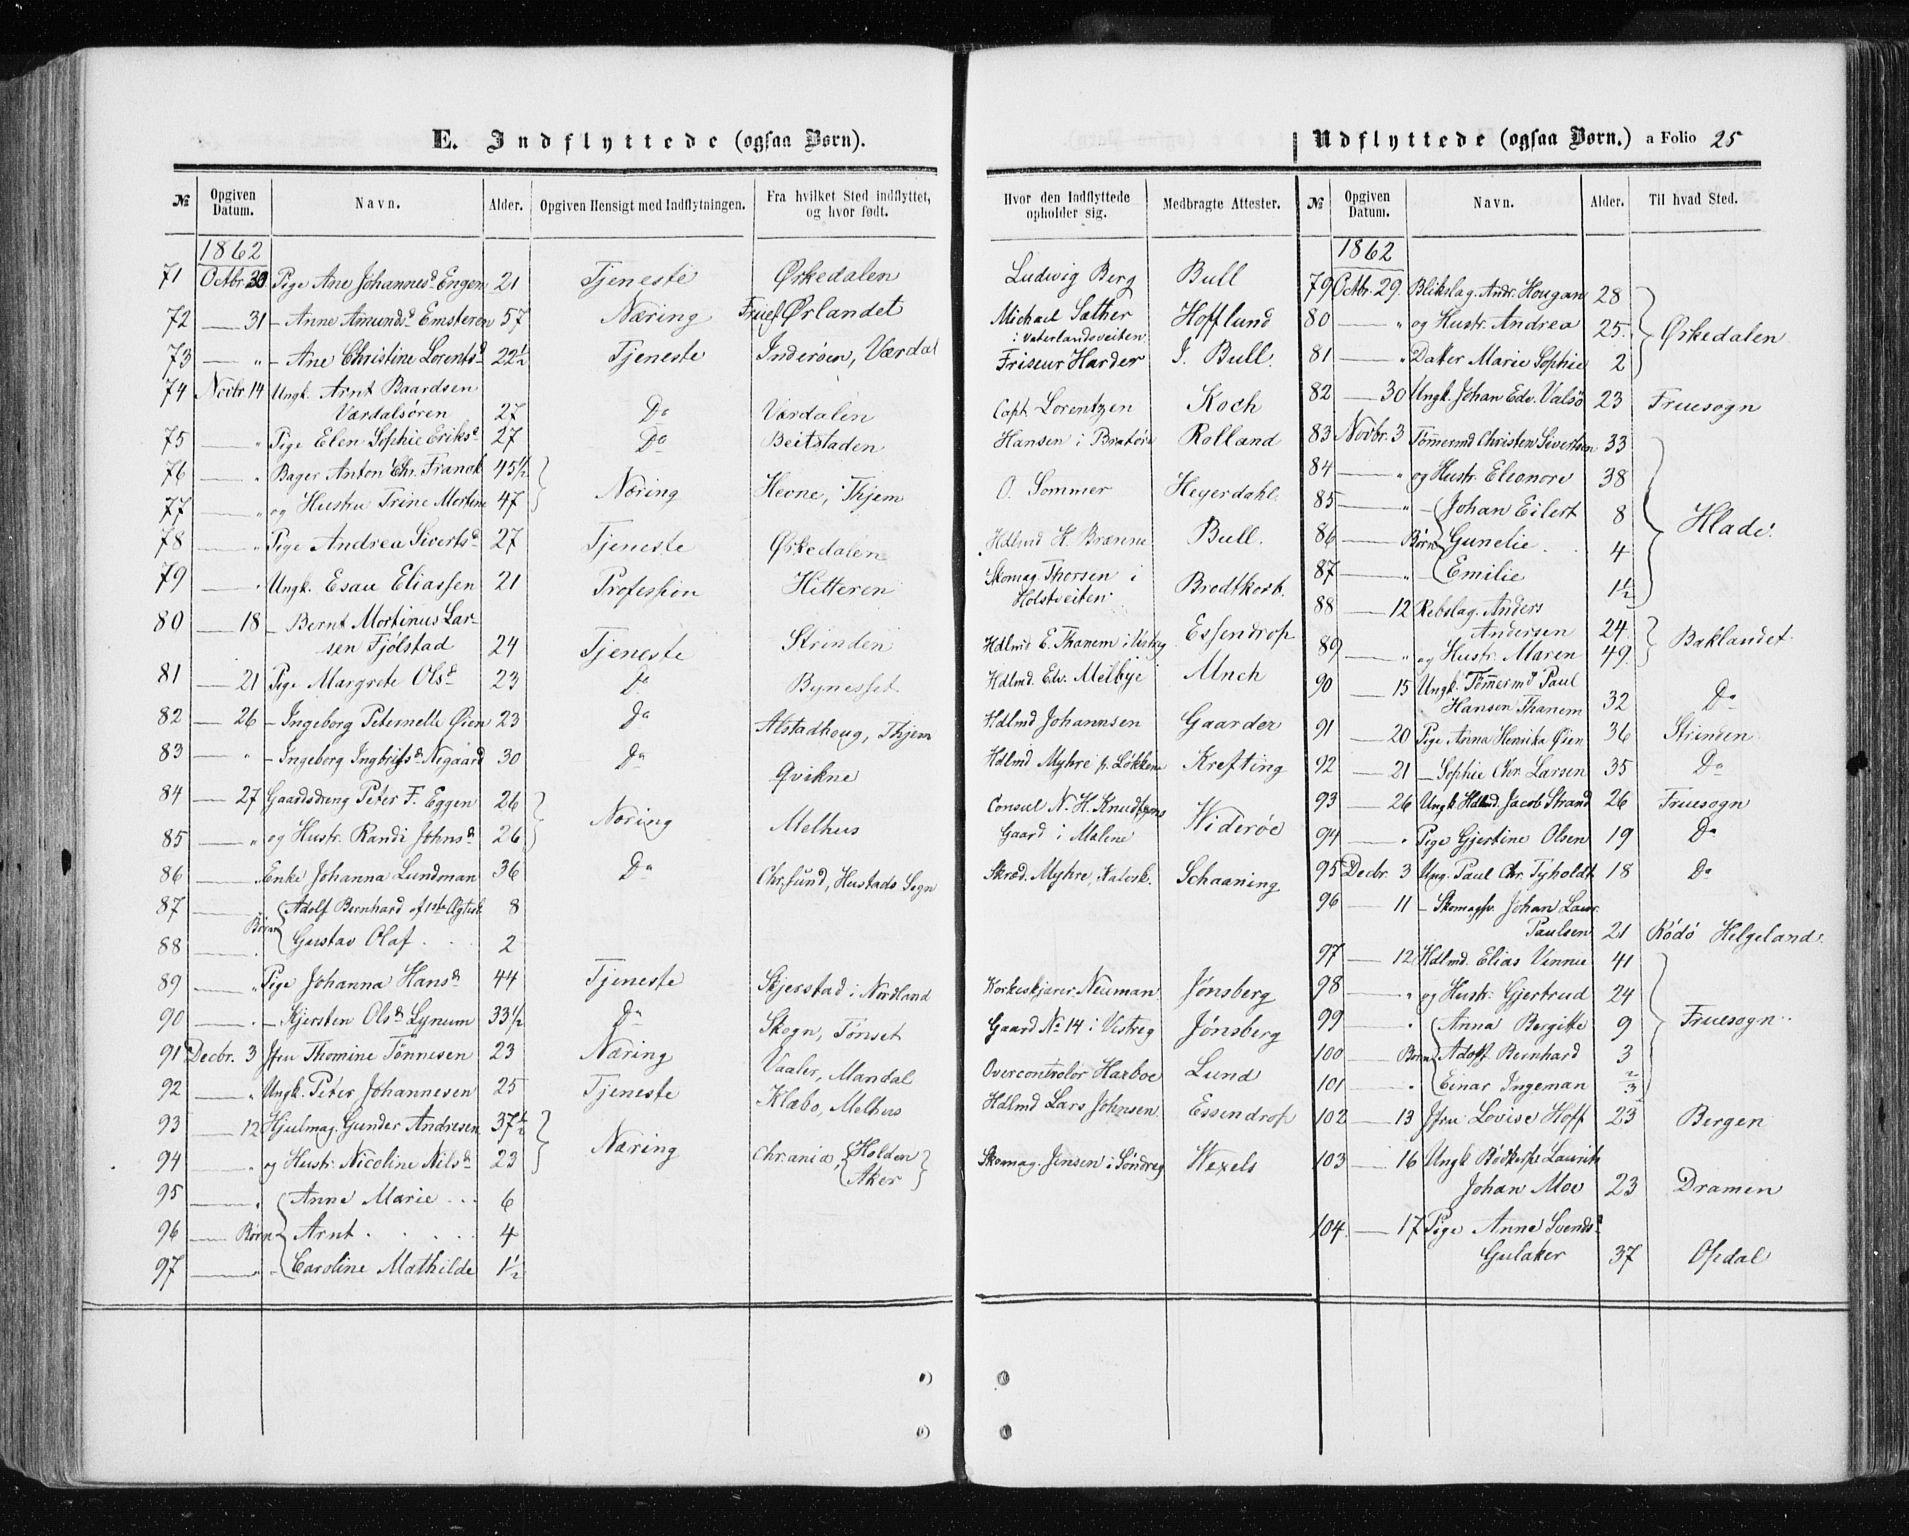 E. Indflyttede (ogsaa Børn).
№ Opgiven Datum. Navn. Alder. Opgiven Hensigt med Indflytningen. Fra hvilket Sted indflyttet, og hvor født.
1862
71 Octbr 30 Pige Ane Johannesd. Engen 21 Tjeneste Ørkedalen
72 — 31 — Anne Amundsd. Emsteren 57 Næring Fruef Ørlandet
73 — " — Ane Christine Lorentsd. 22½ Tjeneste Inderøen, Værdal
74 Novbr 14 Ungk. Arnt Baardsen
Værdalsøren 27 Do Værdalen
75 — " Pige Elen Sophie Eriksd. 27 Do Beitstaden
76 — " Bager Anton Chr. Franck 45½
77 — " og Hustru Trine Mortine 47 Næring Hevne, Thjem
78 — " Pige Andrea Sivertsd. 27 Tjeneste Ørkedalen
79 — " Ungk. Esau Eliassen 21 Profession Hitteren
80 — 18 — Bernt Mortinus Lar-
sen Fjølstad 24 Tjeneste Strinden
81 — 21 Pige Margrete Olsd. 23 Do Bynesset
82 — 26 — Ingeborg Peternelle Øien 23 Do Alstadhoug, Thjem
83 — " — Ingeborg Ingbrigtsd. Negaard 30 Do Qvikne
84 — 27 Gaardsdreng Peter F. Eggen 26
85 — " og Hustr. Randi Johnsd. 26 Næring Melhus
86 — " Enke Johanna Lundman 36 Do Chr.sund, Hustads Sogn
87 — Børn Adolf Bernhard af 1ste Ægtesk. 8
88 — Gustav Olaf . . . 2
89 — " Pige Johanna Hansd. 44 Tjeneste Skjerstad i Nordland
90 — " — Kjersten Olsd. Lynum 33½ Do Skogn, Tønset
91 Decbr. 3 Jfru Thomine Tønnesen 23 Næring Vaaler, Mandal
92 — " Ungk. Peter Johannesen 25 Tjeneste Klæbo, Melhus
93 — 12 Hjulmag. Gunder Andresen 37½
94 — " og Hustr. Nicoline Nilsd. 23 Næring Chr.ania, Holden Aker
95 — " Anne Marie . . . 6
96 — Børn Arnt . . . . . 4
97 — " Caroline Mathilde 1½
Hvor den Indflyttede opholder sig. Medbragte Attester.
Ludwig Berg Bull
Michael Sather
i Vaterlandsveiten Hofflund
Friseur Harder J. Bull.
Capt. Lorentzen Koch
Hansen i Bratøre Rolland
O. Sommer Heyerdahl.
Hdlmd H. Brænne Bull.
Skomag. Thorsen i
Holstveiten Brodtkorb.
Hdlmd E. Thanem i Vestreg Essendrop
Hdlmd. Edv. Melbye Munch
Hdlmd Johannsen Gaarder
Hdlmd Myhre p. Løkken Krefting
Consul N. H. Knudtzons
Gaard i Malene Widerøe
Skræd. Myhre, Kalvsk. Schaaning
Korkeskjærer Neuman Jönsberg
Gaard No 14 i Vestreg Jönsberg
Overcontrolør Harboe Lund
Hdlmd Lars Johnsen Essendrop
Skomag. Jensen i Søndreg Wexels
Udflyttede (ogsaa Børn.) a Folio 25
№ Opgiven Datum. Navn. Alder. Til hvad Sted.
1862
79 Octbr. 29. Blikslag. Andr. Hougan 28
80 — " og Hustr. Andrea 25. Ørkedalen
81 — " Datter Marie Sophie 2
82 — 30 Ungk. Johan Edv. Valsø 23 Fruesogn
83 Novbr. 3 Tömermd Christen Sivertsen 33
84 — " og Hustr. Eleonore 38
85 — " Johan Eilert 8 Hlade.
86 — Børn Gunelie . . 4
87 — " Emilie 1½
88 — 12 Rebslag. Anders
Andersen 24.
89 — " og Hustr. Maren 49. Baklandet
90 — 15 Ungk. Tömermd Paul
Hansen Thanem 32 Do
91 — 20 Pige Anna Henrika Øien 36 Strinden
92 — 21 — Sophie Chr. Larsen 35 Do
93 — 26 Ungk. Hdlmd. Jacob Strand 26 Fruesogn
94 — " Pige Gjertine Olsen 19 Do
95 Decbr. 3 Ung. Paul Chr. Tyholdt 18 Do
96 — 11 — Skomagsv. Johan Laur.
Paulsen 21 Rödö Helgeland.
97 — 12 Hdlmd. Elias Vinnie 41
98 — " og Hustr. Gjertrud 24
99 — " Anna Bergitte 9 Fruesogn.
100 — Børn Adolf Bernhard 3
101 — " Einar Ingeman 2/3
102 — 13 Jfru Lovise Hoff 23 Bergen
103 — 16 Ungk. Bødkersv. Laurits
Johan Moe 23 Dramen
104. — 17 Pige Anne Svendsd.
Gulaker 37 Opdal